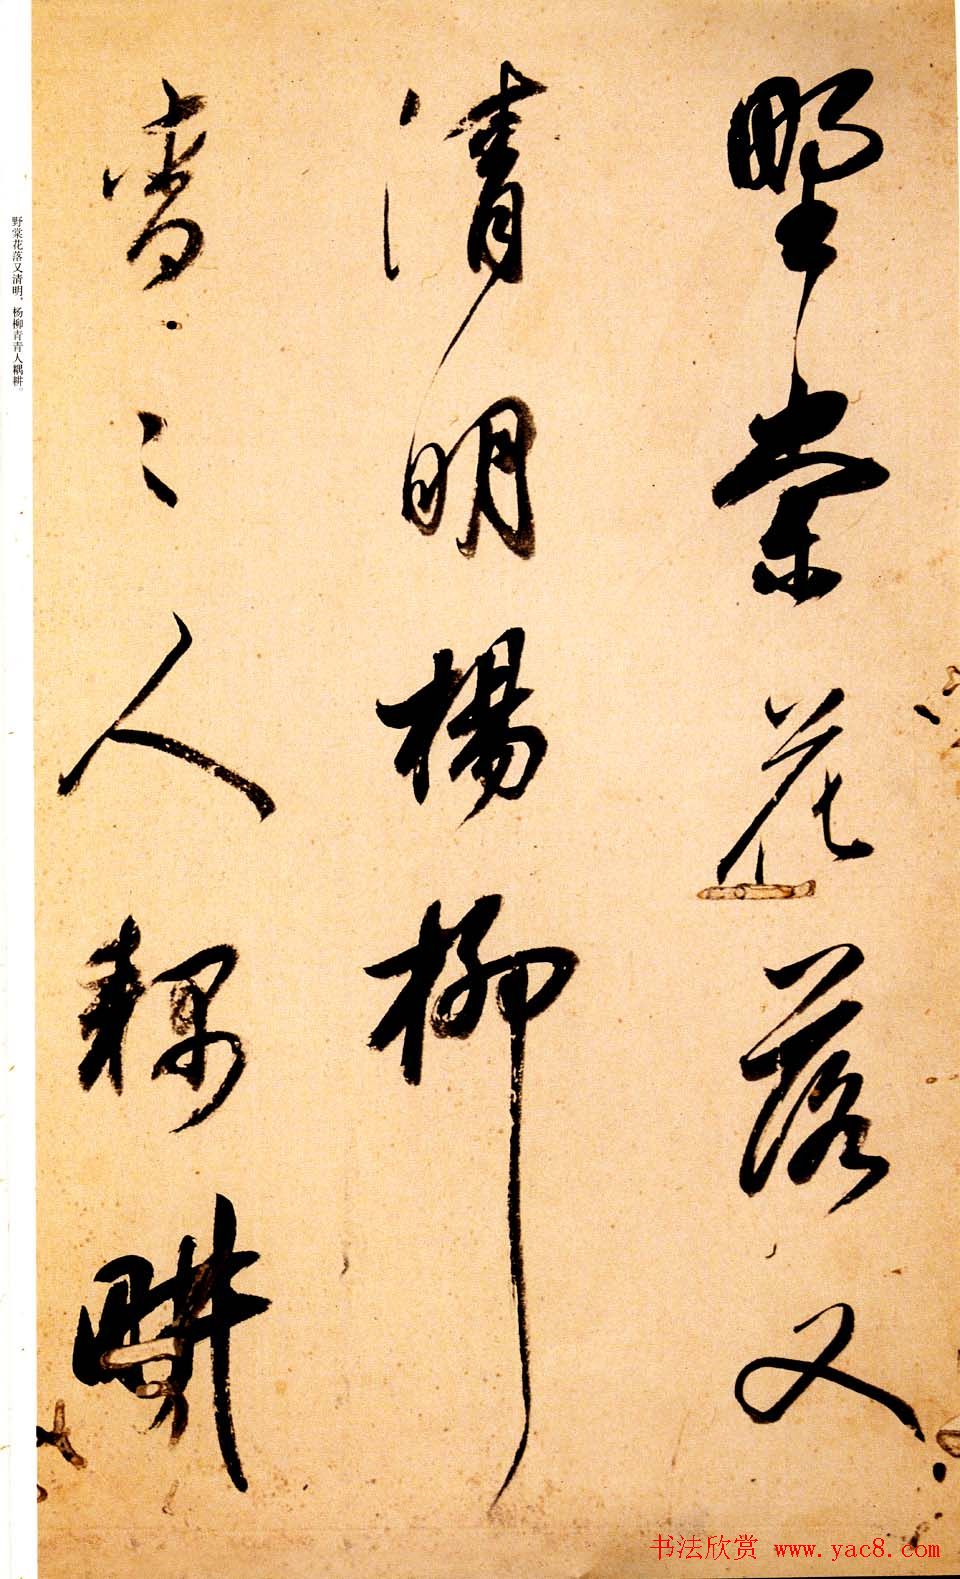 野棠花落又
清明楊柳
青〻人耦畊
野棠花落又清明，杨柳青青人耦耕。
书法欣赏 www.yac8.com